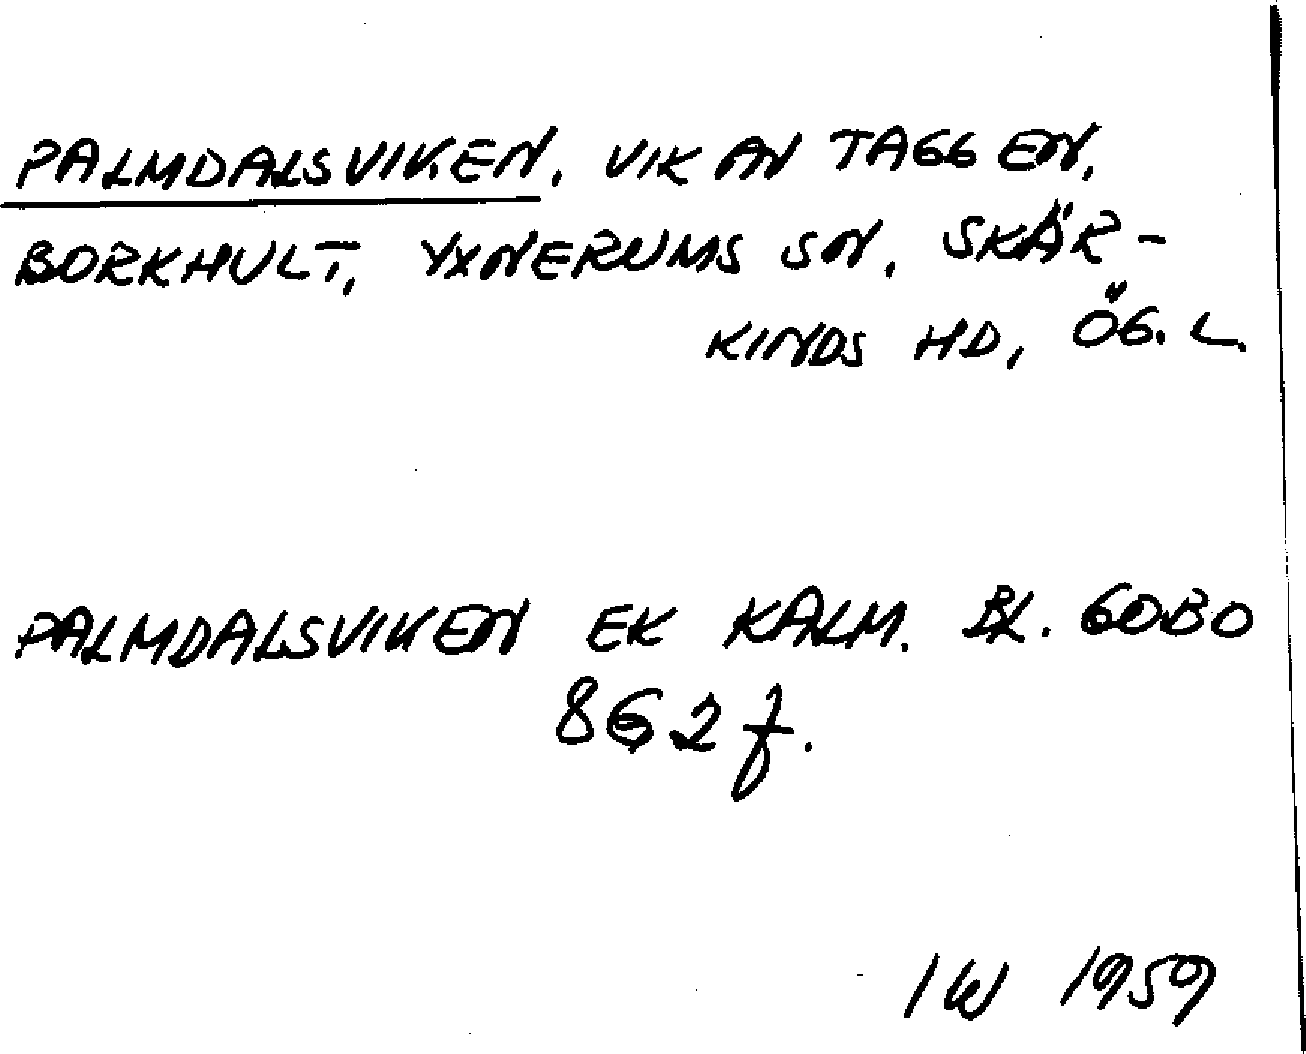 PALMDALSVIKEN, VIK AV TAGGEN,
BORKHULT, YXNERUMS SN, SKÄR-
KINDS HD, ÖG. L.
PALMDALSVIKEN EK KALM. BL. GOBO
862 f.
IW 1959